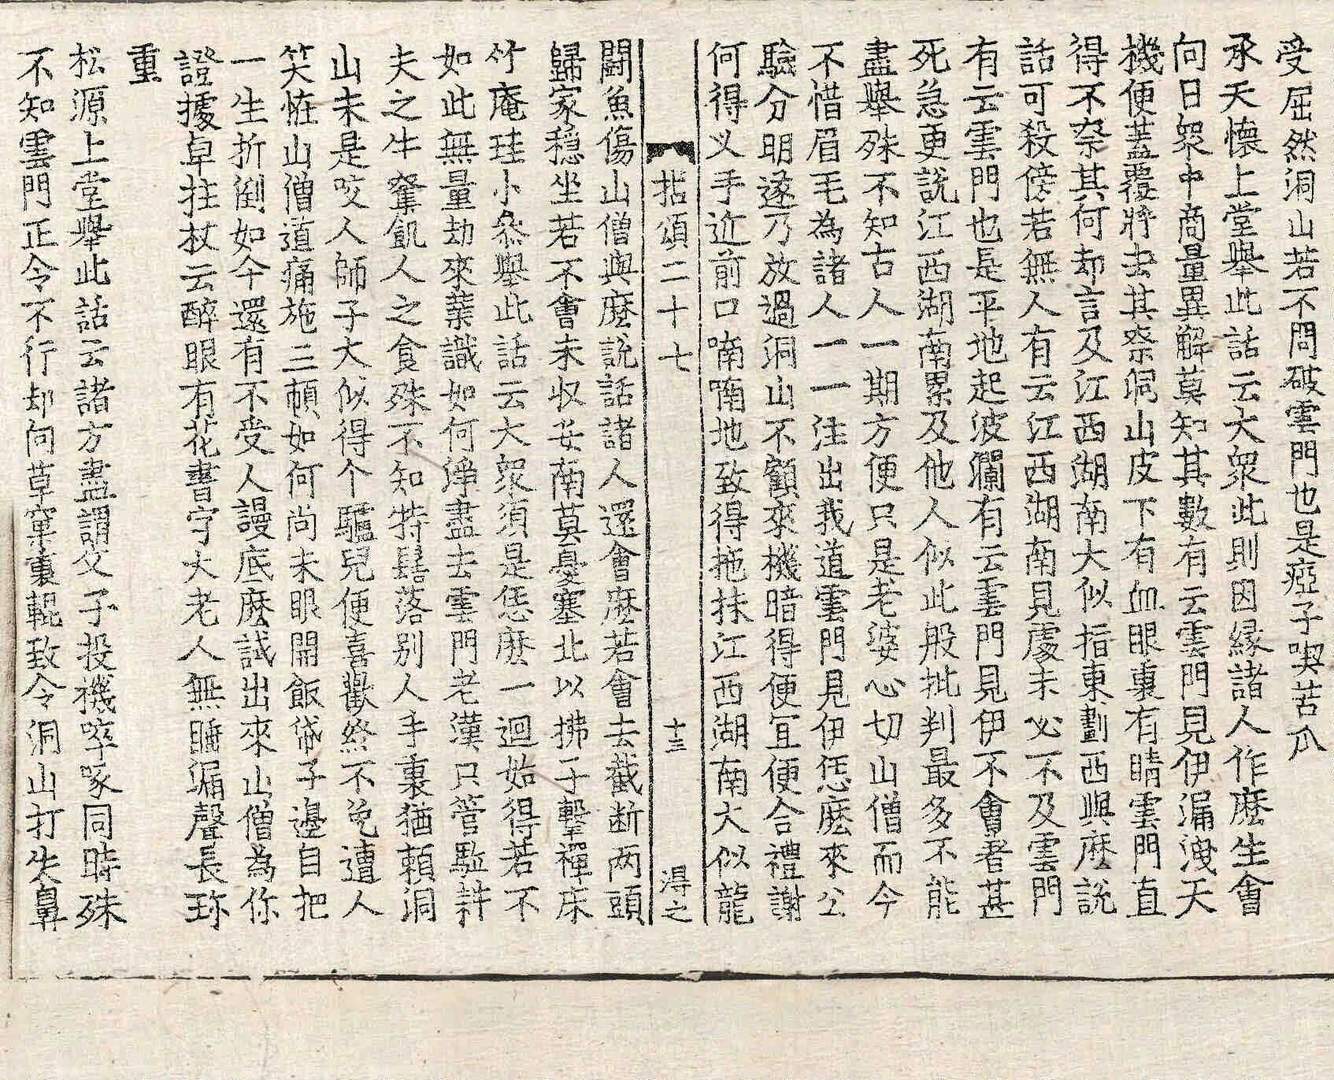 受屈然洞山若不問破雲門也是瘂子喫苦瓜
承天懷上堂擧此話云大衆此則因緣諸人作麽生會
向日衆中商量異解莫知其數有云雲門見伊漏洩天
機便蓋覆將去其奈洞山皮下有血眼裏有睛雲門直
得不奈其何却言及江西湖南大似指東劃西與麽說
話可殺傍若無人有云江西湖南見處未必不及雲門
有云雲門也是平地起波瀾有云雲門見伊不會著甚
死急更說江西湖南累及他人似此般批判最多不能
盡擧殊不知古人一期方便只是老婆心切山僧而今
不惜眉毛為諸人一一注出我道雲門見伊恁麽來公
驗分明遂乃放過洞山不顧來機暗得便冝便合禮謝
何得义手近前口喃喃地致得拖抹江西湖南大似龍
拈頌二十七 十三 淂之
鬪魚傷山僧與麽說話諸人還會麽若會去截断两頭
歸家穩坐若不會未収安南莫憂塞北以拂子擊禪床
竹庵珪小叅擧此話云大衆須是恁麽一迴始得若不
如此無量劫來業識如何淨盡去雲門老漢只管駈耕
夫之牛奪飢人之食殊不知特髻落别人手裏猶賴洞
山未是咬人師子大似得个驢兒便喜歡然不免遭人
笑恠山僧道痛施三頓如何尚未眼開飯俗子邊自把
一生折倒如今還有不受人謾底麽試出來山僧為你
證據卓拄杖云醉眼有花書字大老人無睡漏聲長珎
重
松源上堂擧此話云諸方盡謂父子投機啐啄同時殊
不知雲門正令不行却向草窠裏輥致令洞山打失鼻